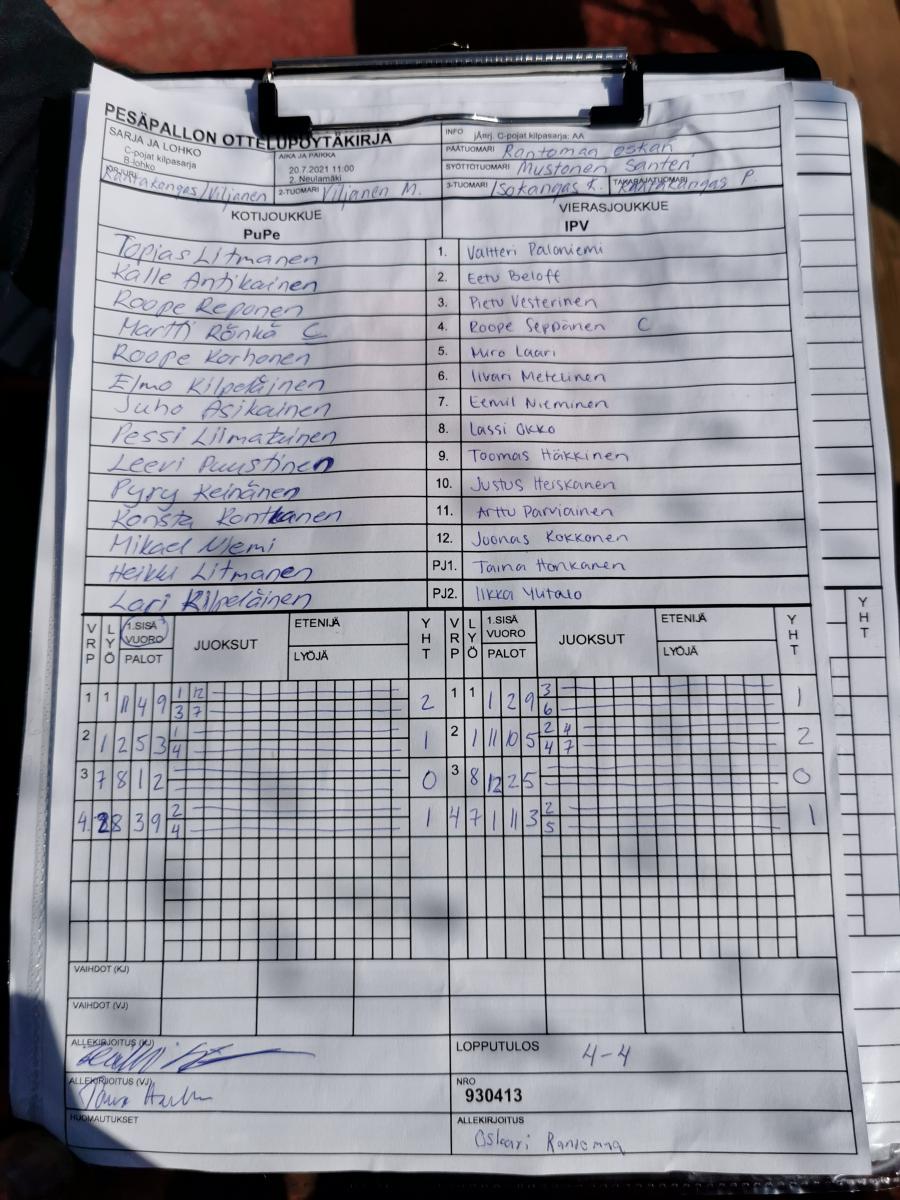 PESÄPALLON OTTELUPÖYTÄKIRJA
SARJA JA LOHKO
C-pojat kilpasarja
B-lohko
AIKA JA PAIKKA
20.7.2021 11:00
2. Neulamäki
INFO jÄnrj. C-pojat kilpasarja: AA
PÄÄTUOMARI Rantoman oskari
SYÖTTÖTUOMARI Mustonen Santeri
Rantakangas/Viljanen
2-TUOMARI Viljanen M.
3-TUOMARI Isokangas K. TAKARAJATUOMARI Rantakangas P.
KOTIJOUKKUE VIERASJOUKKUE
PuPe IPV
Topias Litmanen 1. Valtteri Paloniemi
Kalle Antikainen 2. Eetu Beloff
Roope Reponen 3. Pietu Vesterinen
Martti Rönkä C 4. Roope Seppänen C
Roope Korhonen 5. Miro Laari
Elmo Kilpeläinen 6. Iivari Metelinen
Juho Asikainen 7. Eemil Nieminen
Pessi Liimatainen 8. Lassi Okko
Leevi Puustinen 9. Toomas Häkkinen
Pyry Keinänen 10. Justus Heiskanen
Konsta Kontkanen 11. Arttu Parviainen
Mikael Niemi 12. Joonas Kokkonen
Heikki Litmanen PJ1. Taina Honkanen
Lari Kilpeläinen PJ2. Iikka Yutalo
VRP LYÖ 1.SISÄ VUORO PALOT JUOKSUT ETENIJÄ LYÖJÄ YHT VRP LYÖ 1.SISÄ VUORO PALOT JUOKSUT ETENIJÄ LYÖJÄ YHT YHT
1 1 11 4 9 1 12 2 1 1 1 2 9 3 1
3 7 6
2 1 2 5 3 1 1 2 1 11 10 5 2 4 2
4 4 7
3 7 8 1 2 0 3 8 12 2 5 0
4. 2 8 3 9 2 1 4 7 1 11 3 2 1
4 5
VAIHDOT (KJ)
VAIHDOT (VJ)
ALLEKIRJOITUS (KJ)
LOPPUTULOS 4-4
ALLEKIRJOITUS (VJ)
NRO
930413
HUOMAUTUKSET
ALLEKIRJOITUS
Oskari Rantoma